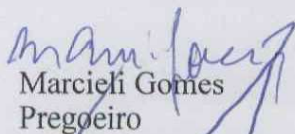 Marcieli Gomes
Pregoeiro